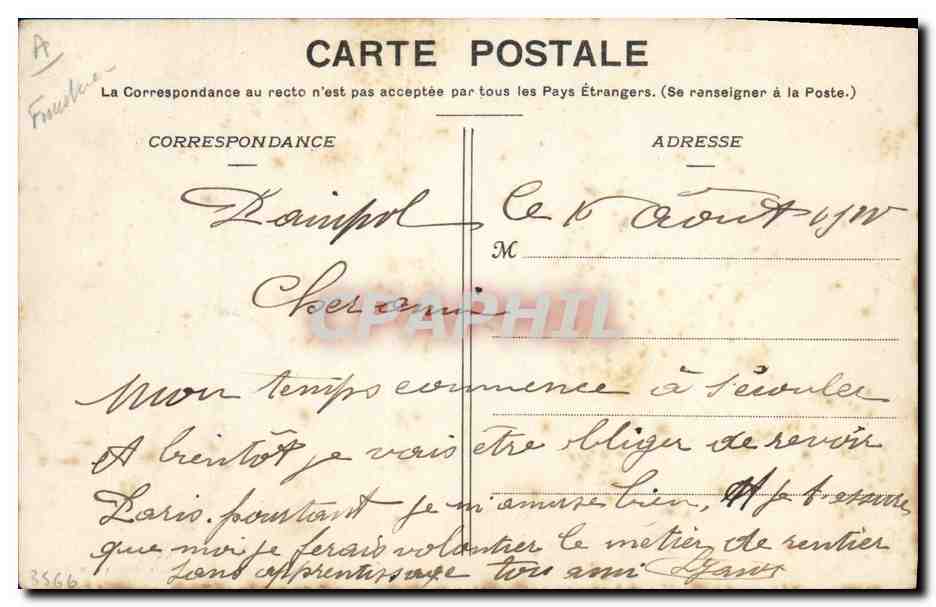 A
CARTE POSTALE
La Correspondance au recto n'est pas acceptée par tous les Pays Étrangers. (Se renseigner à la Poste.)
CORRESPONDANCE
ADRESSE
Paimpol le Août
M
Cher ami
CPAPHIL
Mon temps commence à s'écouler
et bientôt je vais être obliger de revoir
Paris. pourtant je m'amuse bien, et je t'assure
que moi je ferais volontier le métier de rentier
sans apprentissage ton ami
3566